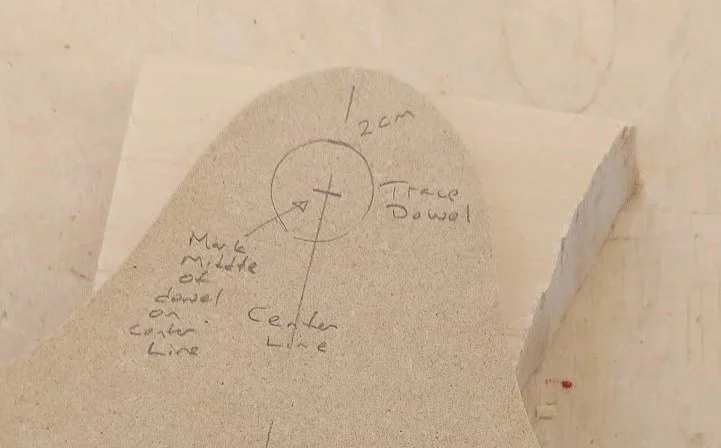 2cm
Trace
Dowel
Mark
Middle
of
dowel
on
center
Line
Center
Line